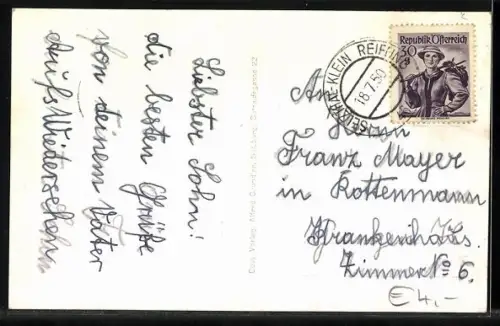 Liebster Sohn!
die besten Grüße
von deinem Vater
Aufs Wiedersehen
Republik Österreich
30
KLEIN REIFLING
18.7.50
An
Herrn
Franz Mayer
in Rottenmann
Krankenhaus.
Zimmer No 6.
€ 4,-